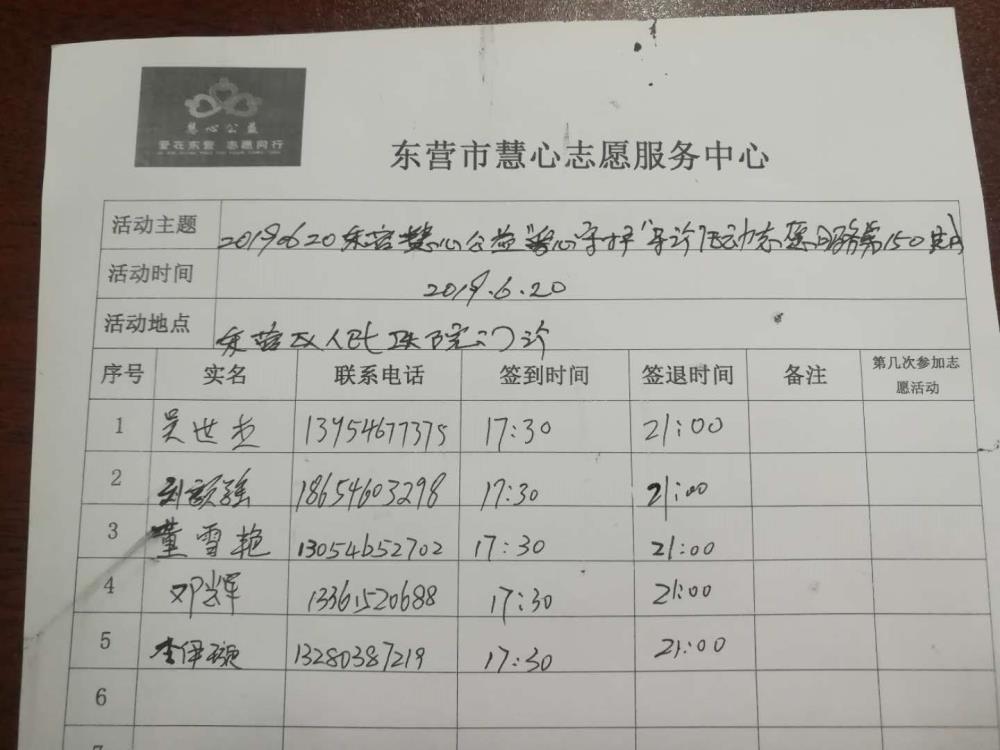 慧心公益
爱在东营 志愿同行
东营市慧心志愿服务中心
活动主题 20190620东营慧心公益"慧心守护"导诊活动志愿服务第150生成
活动时间 2019.6.20
活动地点 东营区人民医院门诊
序号 实名 联系电话 签到时间 签退时间 备注 第几次参加志
愿活动
1 吴世杰 13954677375 17:30 21:00
2 刘颜强 18654603298 17:30 21:00
3 董雪艳 13054652702 17:30 21:00
4 邓辉 13361520688 17:30 21:00
5 李伊琬 13280387219 17:30 21:00
6
7